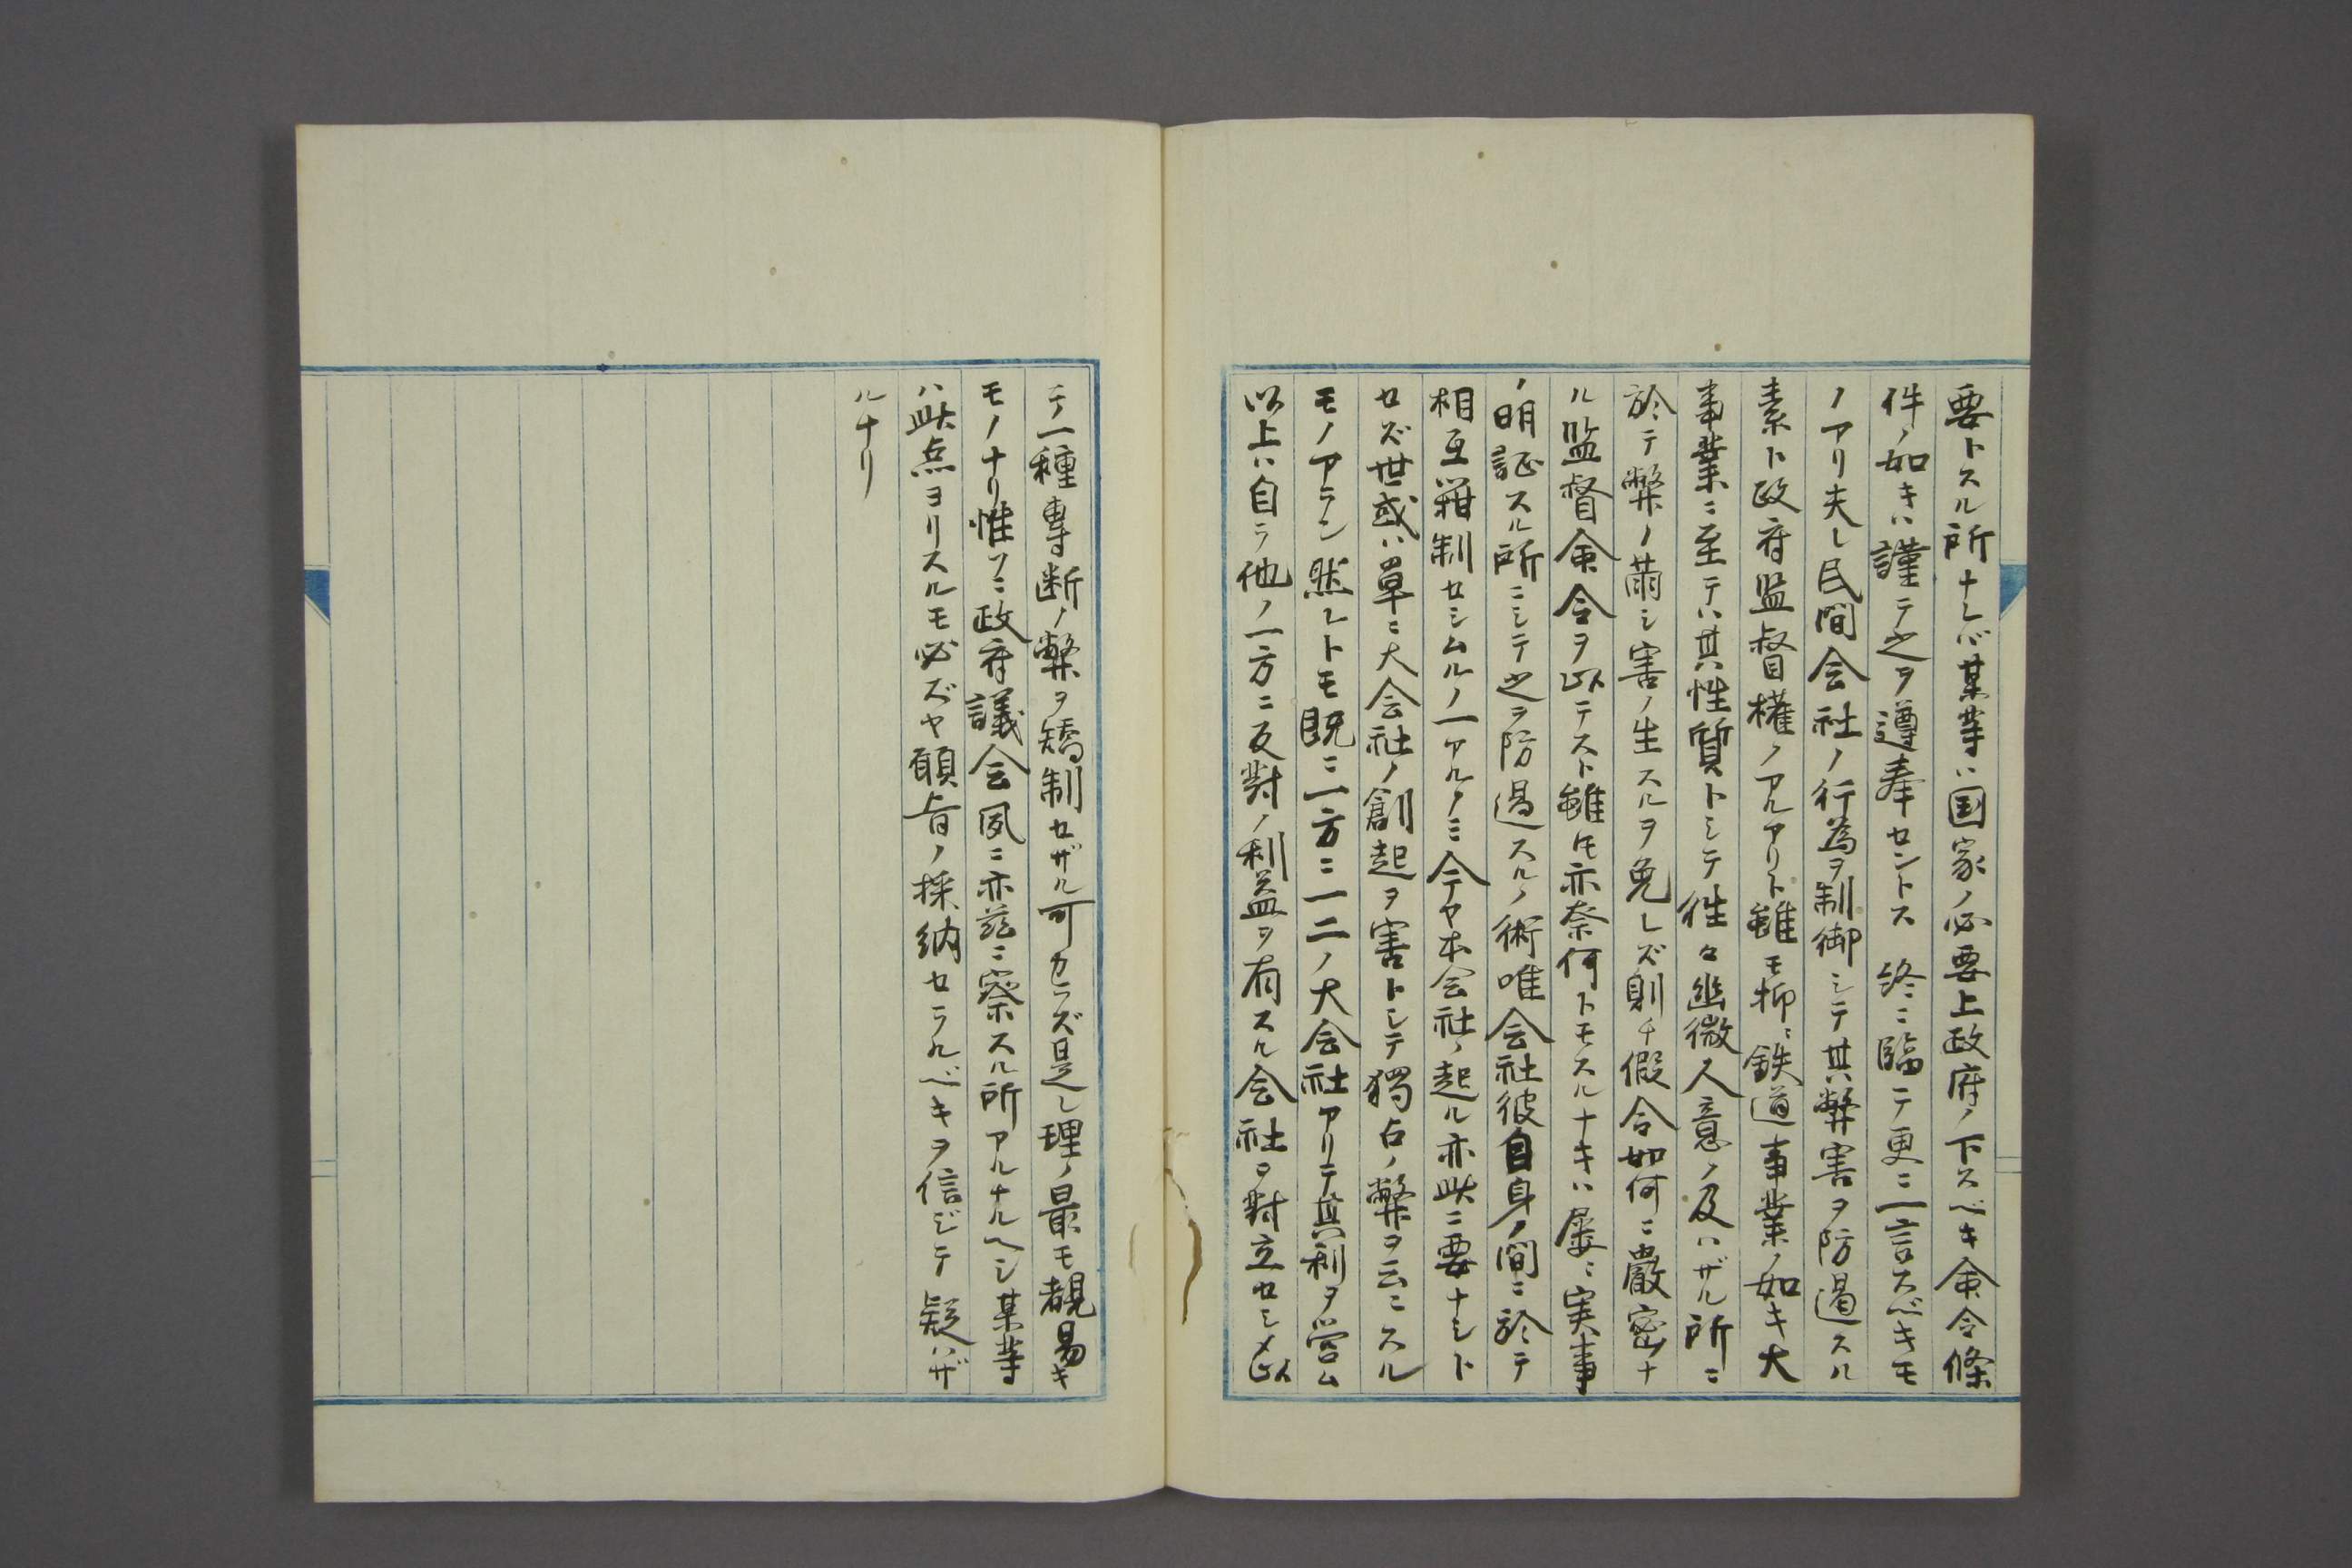 要トスル所ナレバ某等ハ国家ノ必要上政府ノ下スベキ命令條
件ノ如キハ謹テ之ヲ遵奉セントス 終ニ臨テ更ニ一言スベキモ
ノアリ夫レ民間会社ノ行為ヲ制御シテ其弊害ヲ防遏スル
素ト政府監督権ノアルアリト雖モ抑ミ鉄道事業ノ如キ大
事業ニ至テハ其性質トシテ往々幽微人意ノ及ハザル所ニ
於テ弊ノ萠シ害ノ生スルヲ免レズ則チ假令如何ニ嚴密ナ
ル監督命令ヲ以テスト雖モ亦奈何トモスルナキハ屡ミ実事
ノ明証スル所ニシテ之ヲ防遏スルノ術唯会社彼自身ノ間ニ於テ
相互箝制セシムルノ一アルノミ今ヤ本会社ノ起ル亦此ニ要ナシト
セズ世或ハ單ニ大会社ノ創起ヲ害トシテ獨占ノ弊ヲ云ニスル
モノアラン然レトモ既ニ一方ニ一二ノ大会社アリテ其利ヲ営ム
以上ハ自ラ他ノ一方ニ反對ノ利益ヲ有スル会社ヲ對立セシメ以
テ一種專断ノ弊ヲ矯制セザル可カラズ是レ理ノ最モ覩易キ
モノナリ惟フニ政府議会夙ニ亦茲ニ察スル所アルナルヘシ某等
ハ此点ヨリスルモ必ズヤ願旨ノ採納セラルベキヲ信ジテ疑ハザ
ルナリ